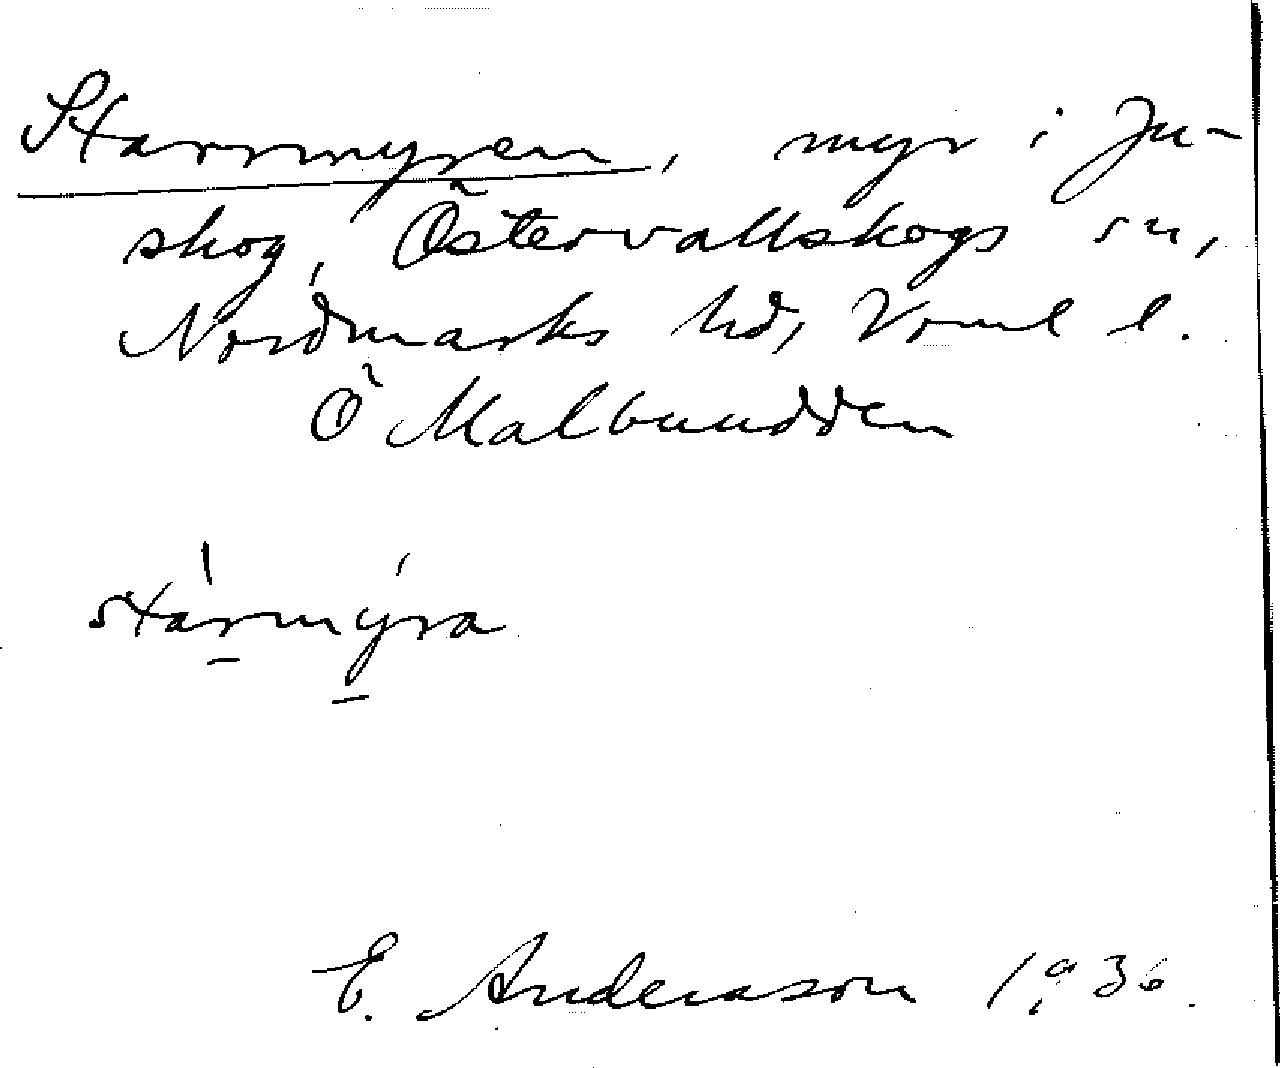 Starrmyren, myr i Ju-
skog, Östervallskogs sn,
Nordmarks hd, Vrml l.
Ö Malbuudden
stàrmýra
E. Andersson 1936.